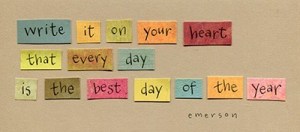 write it on your heart
that every day
is the best day of the year
emerson